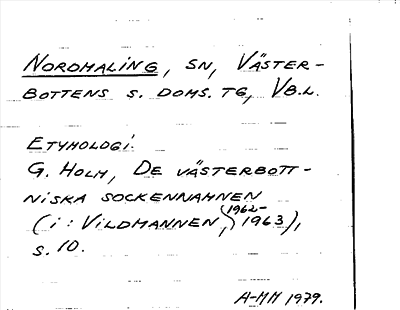 NORDMALING, SN, VÄSTER-
BOTTENS S. DOMS. TG, VB.L.
ETYMOLOGI:
G. HOLM, DE VÄSTERBOTT-
NISKA SOCKENNAMNEN
(I: VILDMANNEN, 1962-1963),
S. 10.
A-MM 1979.